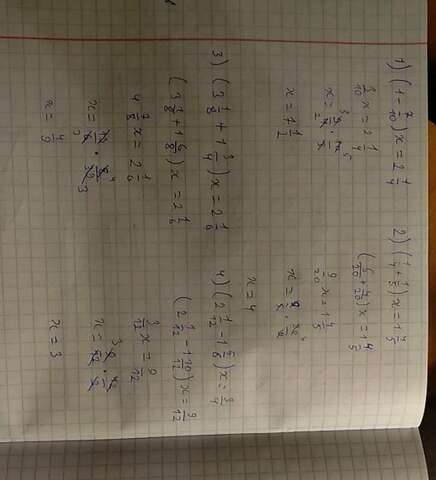 1) (1 - 7/10)x = 2 1/4
3/10 x = 2 1/4
x = 9/4 · 10/3
x = 7 1/2
2) (1/4 + 1/5)x = 1 4/5
(5/20 + 4/20)x = 1 4/5
9/20 x = 1 4/5
x = 9/5 · 20/9
x = 4
3) (3 1/8 + 1 3/4)x = 2 1/6
(3 1/8 + 1 6/8)x = 2 1/6
4 7/8 x = 2 1/6
x = 13/6 · 8/39
x = 4/9
4) (2 1/12 - 1 5/6)x = 3/4
(2 1/12 - 1 10/12)x = 9/12
3/12 x = 9/12
x = 9/12 · 12/3
x = 3